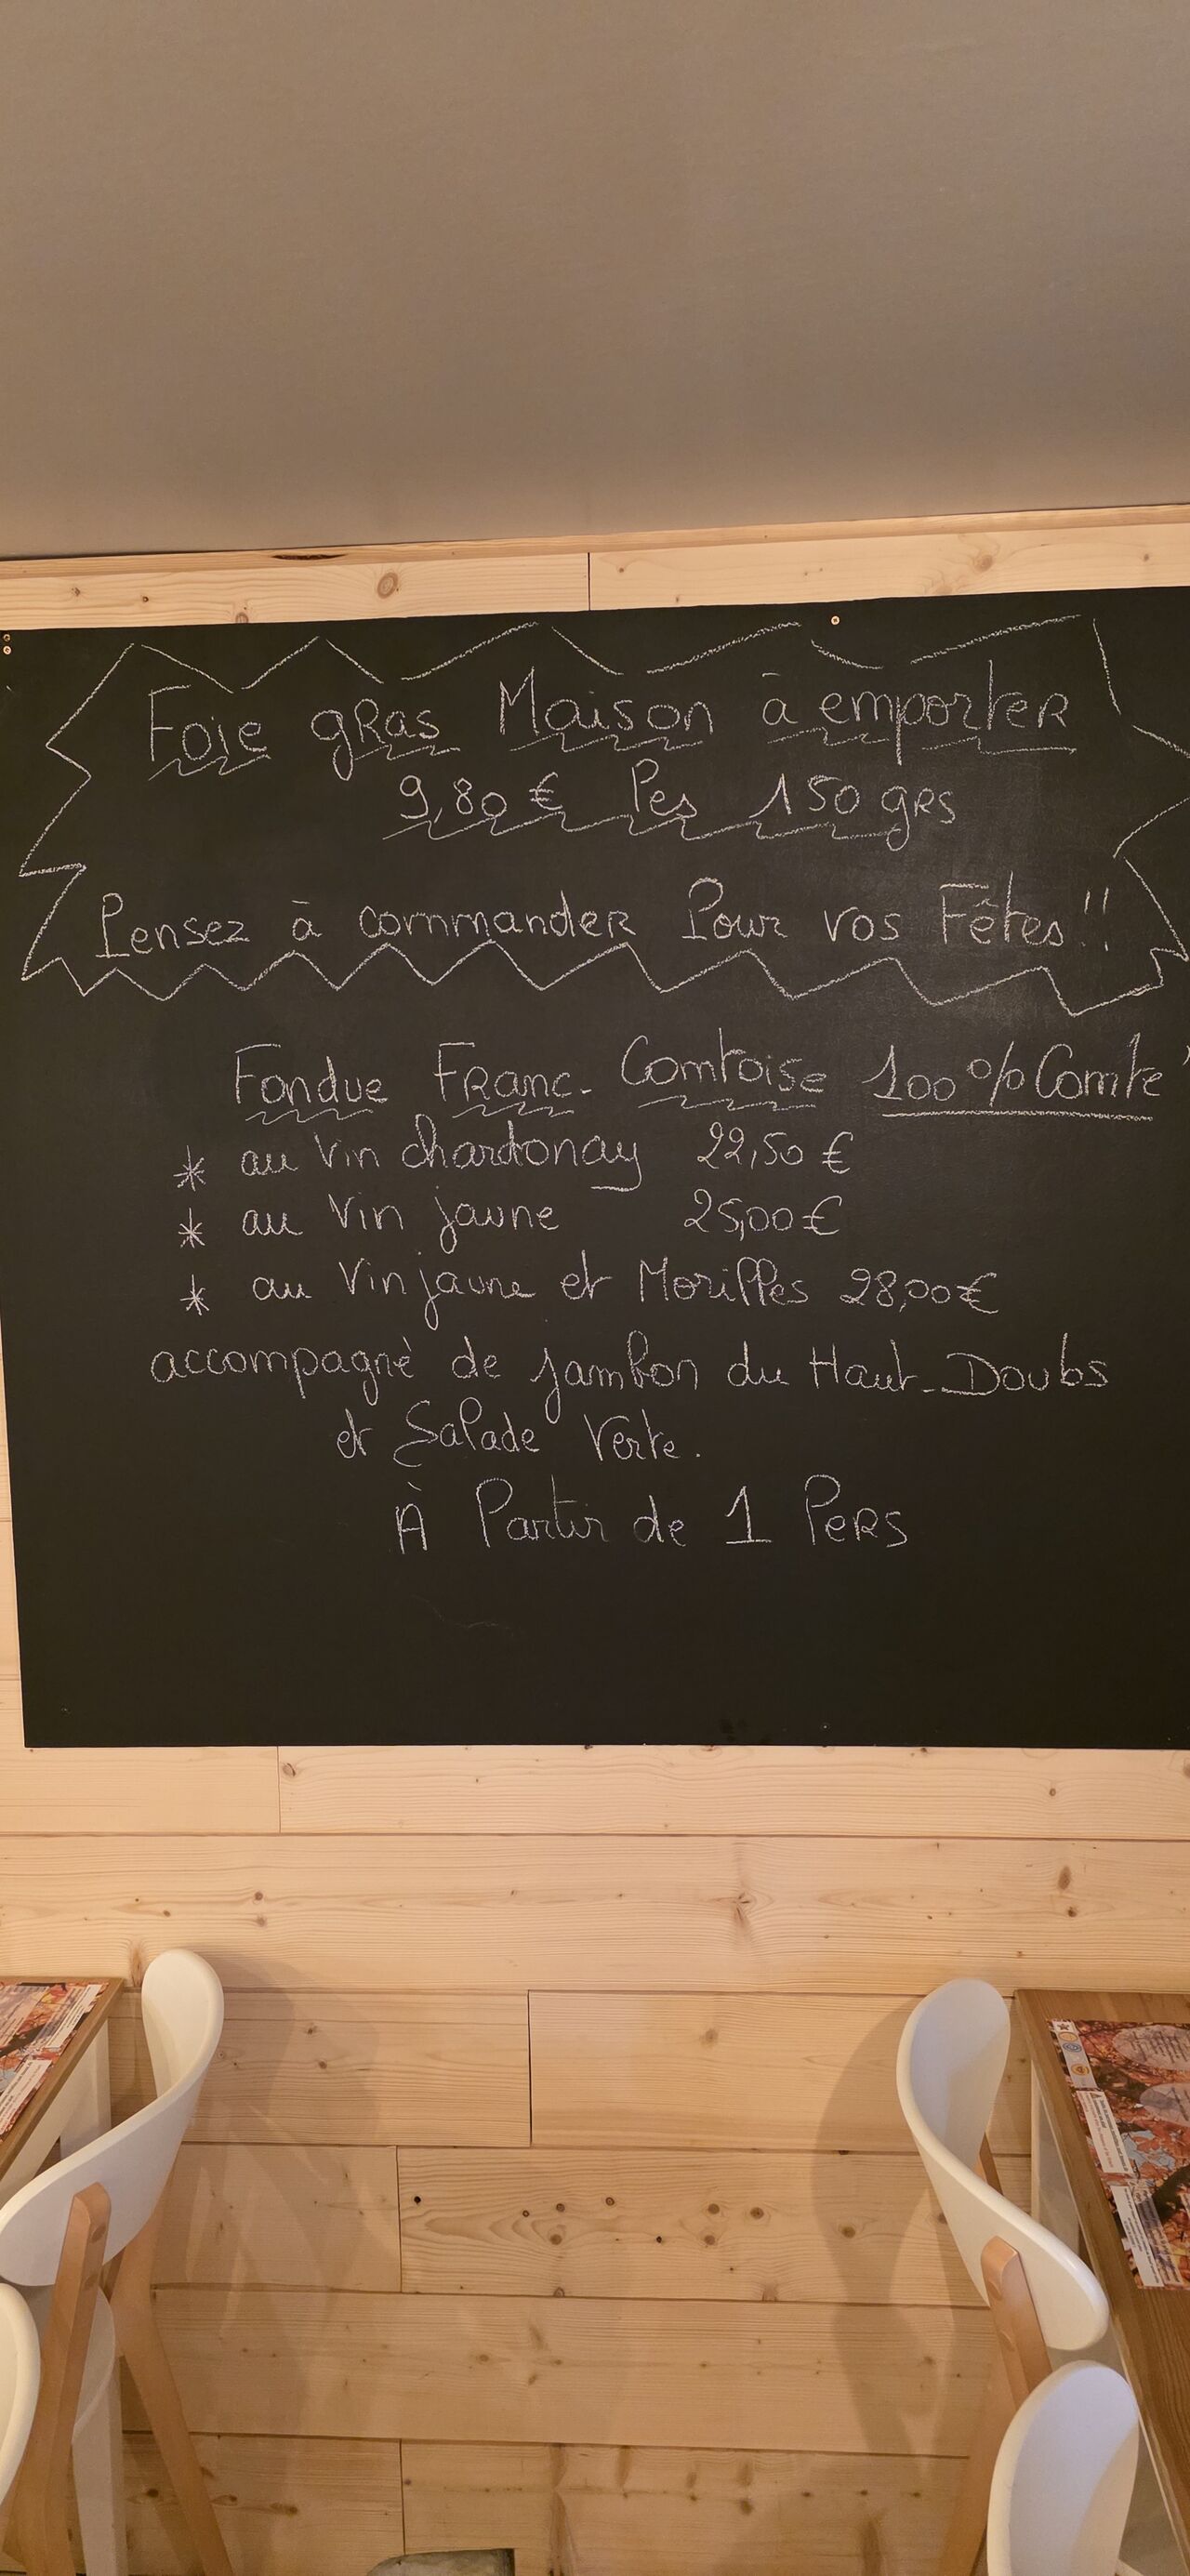 Foie gRas Maison à emporteR
9,80 € Les 150 gRs
Pensez à commandeR Pour vos Fêtes!!
Fondue FRanc-Comtoise 100% Comté
* au Vin chardonay 22,50 €
* au Vin jaune 25,00 €
* au Vin jaune et Morilles 28,00 €
accompagné de jambon du Haut-Doubs
et Salade Verte.
À Partir de 1 PeRS